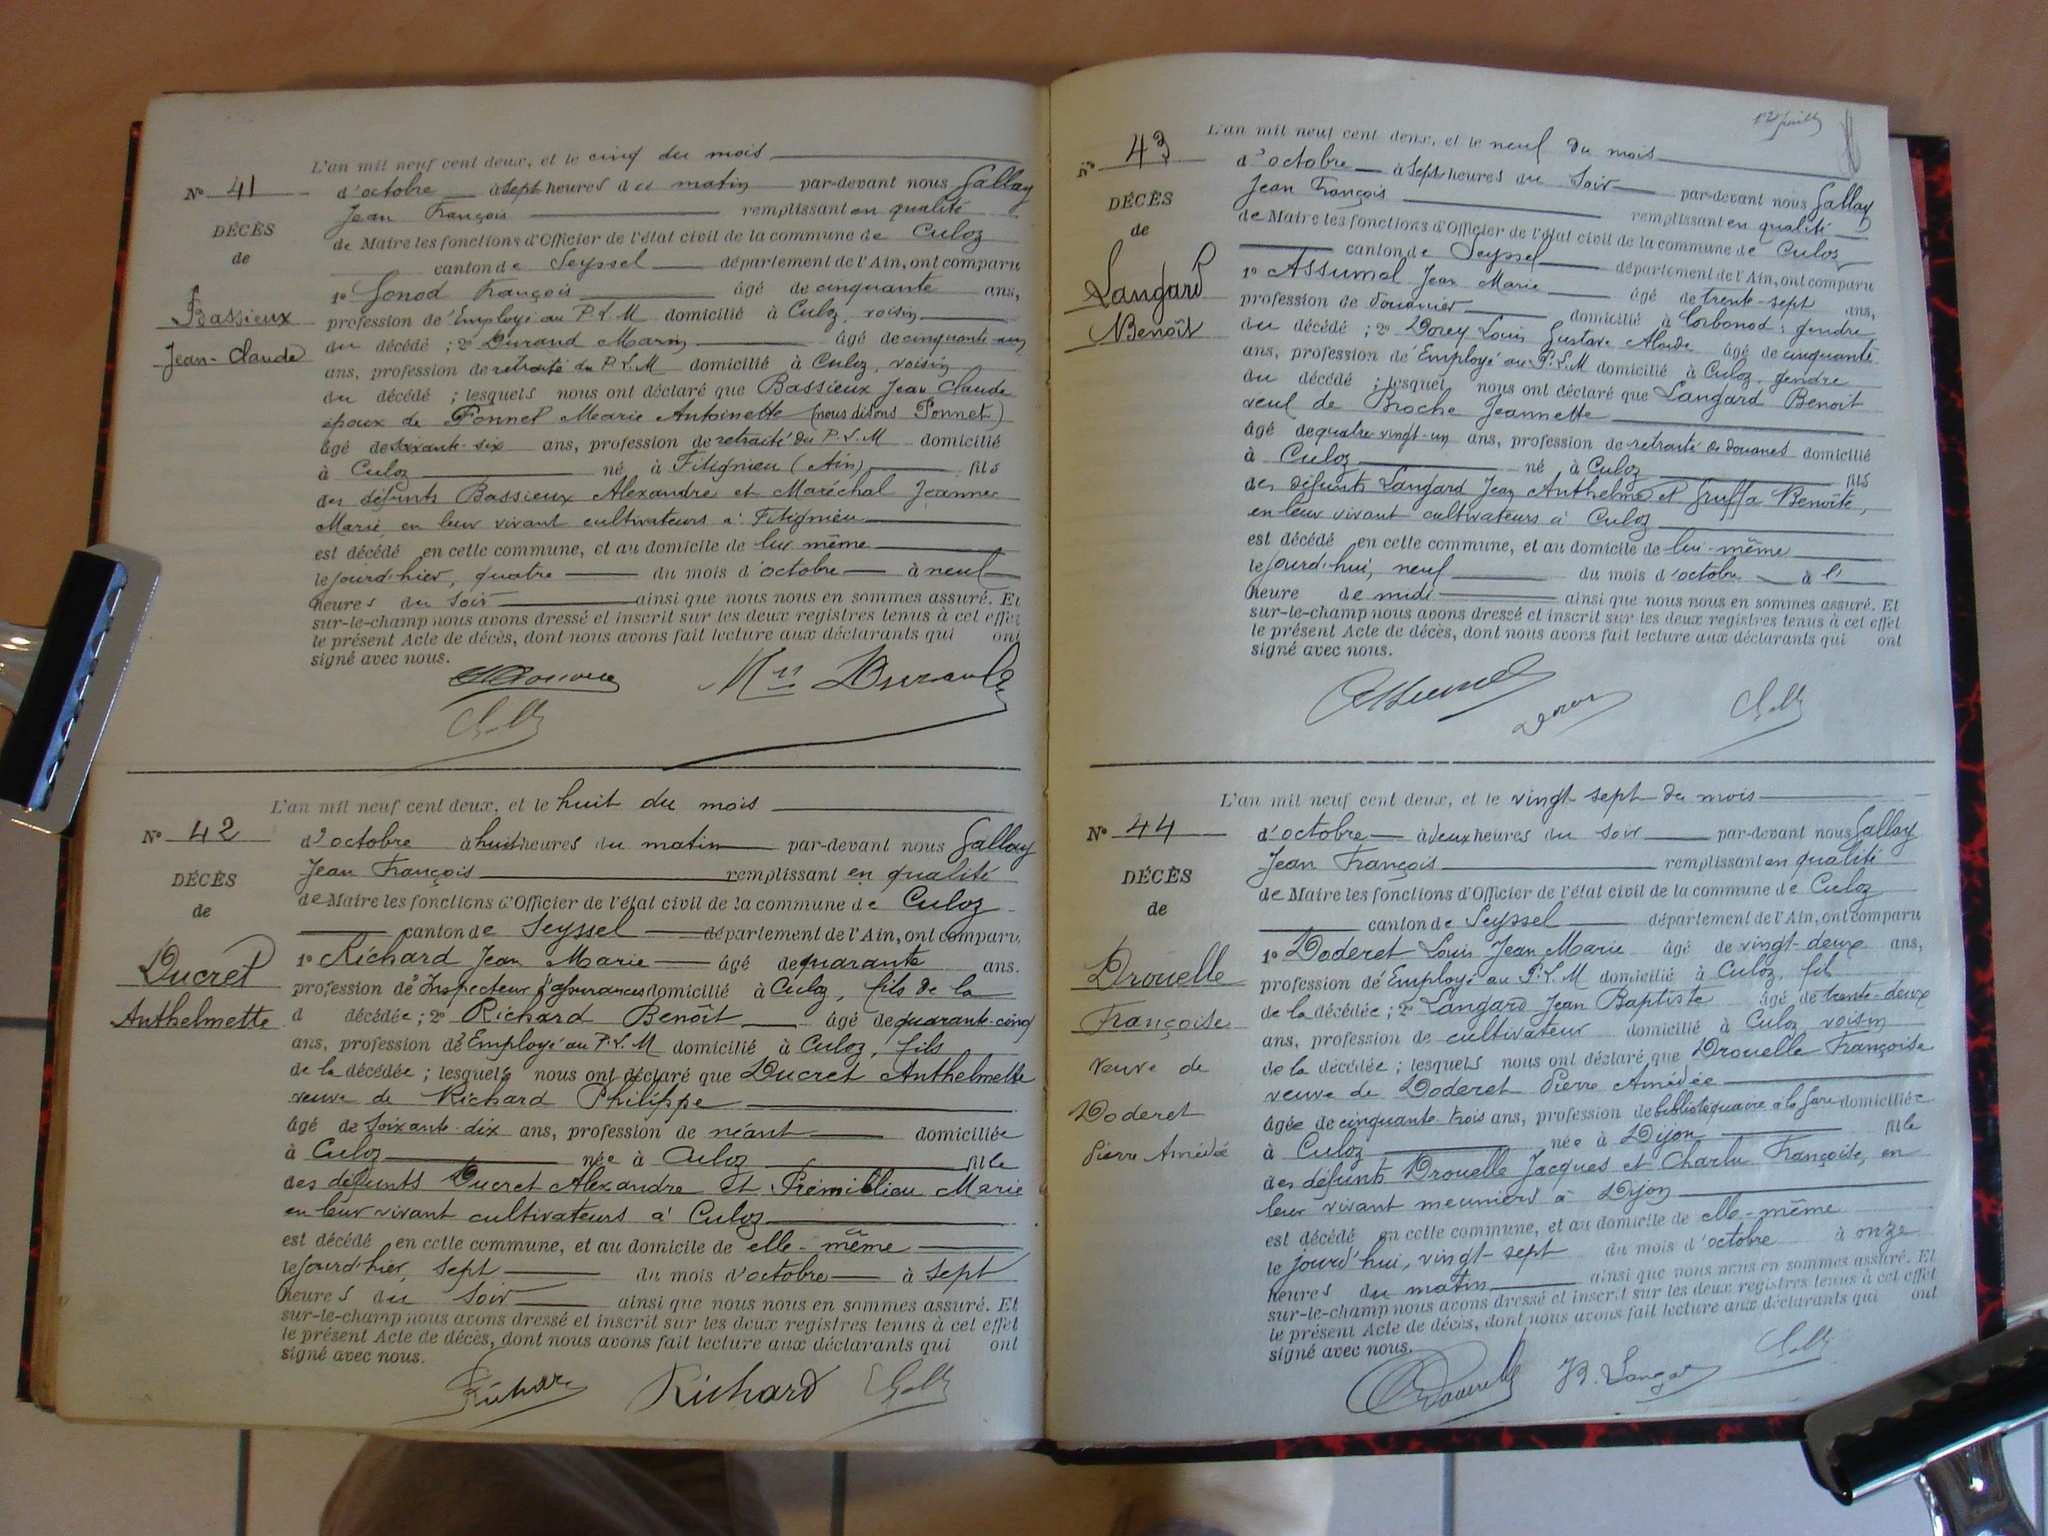 L'an mil neuf cent deux, et le cinq du mois
N° 41
d'octobre à sept heures du matin par-devant nous Gallay
Jean François remplissant en qualité
DÉCÈS
de Maire les fonctions d'Officier de l'état civil de la commune de Culoz
de
canton de Seyssel département de l'Ain, ont comparu
1° Gonod François âgé de cinquante ans,
Bassieux
profession d'Employé au P.L.M domicilié à Culoz, voisin
Jean-Claude
du décédé ; 2° Durand Marin âgé de cinquante-un
ans, profession de retraité du P.L.M domicilié à Culoz, voisin
du décédé ; lesquels nous ont déclaré que Bassieux Jean Claude
époux de Ponnel Marie Antoinette (nous disons Ponnet)
âgé de soixante-six ans, profession de retraité du P.L.M domicilié
à Culoz né à Fitignieu (Ain) fils
des défunts Bassieux Alexandre et Maréchal Jeanne
Marie, en leur vivant cultivateurs à Fitignieu
est décédé en cette commune, et au domicile de lui même
le jourd'hier, quatre du mois d'octobre à neuf
heures du soir ainsi que nous nous en sommes assuré. Et
sur-le-champ nous avons dressé et inscrit sur les deux registres tenus à cet effet
le présent Acte de décès, dont nous avons fait lecture aux déclarants qui ont
signé avec nous.
Min Durand
L'an mil neuf cent deux, et le huit du mois
N° 42
d'octobre à huit heures du matin par-devant nous Gallay
Jean François remplissant en qualité
DÉCÈS
de Maire les fonctions d'Officier de l'état civil de la commune de Culoz
de
canton de Seyssel département de l'Ain, ont comparu
1° Richard Jean Marie âgé de quarante ans.
Ducret
profession d'Inspecteur d'assurances domicilié à Culoz, fils de la
Anthelmette
d décédée ; 2° Richard Benoît âgé de quarante-cinq
ans, profession d'Employé au P.L.M domicilié à Culoz, fils
de la décédée ; lesquels nous ont déclaré que Ducret Anthelmette
veuve de Richard Philippe
âgé de soixante-dix ans, profession de néant domiciliée
à Culoz née à Culoz fille
des défunts Ducret Alexandre et Prémillieu Marie
en leur vivant cultivateurs à Culoz
est décédé en cette commune, et au domicile de elle-même
le jourd'hier, sept du mois d'octobre à sept
heures du soir ainsi que nous nous en sommes assuré. Et
sur-le-champ nous avons dressé et inscrit sur les deux registres tenus à cet effet
le présent Acte de décès, dont nous avons fait lecture aux déclarants qui ont
signé avec nous.
Richard Richard
L'an mil neuf cent deux, et le neuf du mois
N° 43
d'octobre à sept heures du soir par-devant nous Gallay
Jean François remplissant en qualité
DÉCÈS
de Maire les fonctions d'Officier de l'état civil de la commune de Culoz
de
canton de Seyssel département de l'Ain, ont comparu
Langard
1° Assumel Jean Marie âgé de trente-sept ans,
profession de douanier domicilié à Corbonod, gendre
Benoît
du décédé ; 2° Dorey Louis Gustave Alcide âgé de cinquante
ans, profession d'Employé au P.L.M domicilié à Culoz, gendre
du décédé ; lesquels nous ont déclaré que Langard Benoît
veuf de Broche Jeannette
âgé de quatre-vingt-un ans, profession de retraité de douanes domicilié
à Culoz né à Culoz fils
des défunts Langard Jean Anthelme et Gruffa Benoîte,
en leur vivant cultivateurs à Culoz
est décédé en cette commune, et au domicile de lui-même
le jourd'hui, neuf du mois d'octobre à l'
heure de midi ainsi que nous nous en sommes assuré. Et
sur-le-champ nous avons dressé et inscrit sur les deux registres tenus à cet effet
le présent Acte de décès, dont nous avons fait lecture aux déclarants qui ont
signé avec nous.
Assumel
L'an mil neuf cent deux, et le vingt-sept du mois
N° 44
d'octobre à deux heures du soir par-devant nous Gallay
Jean François remplissant en qualité
DÉCÈS
de Maire les fonctions d'Officier de l'état civil de la commune de Culoz
de
canton de Seyssel département de l'Ain, ont comparu
1° Doderet Louis Jean Marie âgé de vingt-deux ans,
Drouelle
profession d'Employé au P.L.M domicilié à Culoz, fils
Françoise
de la décédée ; 2° Langard Jean Baptiste âgé de trente-deux
ans, profession de cultivateur domicilié à Culoz, voisin
veuve de
de la décédée ; lesquels nous ont déclaré que Drouelle Françoise
Doderet
veuve de Doderet Pierre Amédée
Pierre Amédée
âgée de cinquante trois ans, profession de bibliothéquaire à la gare domiciliée
à Culoz née à Dijon fille
des défunts Drouelle Jacques et Charlu Françoise, en
leur vivant meuniers à Dijon
est décédé en cette commune, et au domicile de elle-même
le jourd'hui, vingt-sept du mois d'octobre à onze
heures du matin ainsi que nous nous en sommes assuré. Et
sur-le-champ nous avons dressé et inscrit sur les deux registres tenus à cet effet
le présent Acte de décès, dont nous avons fait lecture aux déclarants qui ont
signé avec nous.
JB. Langard